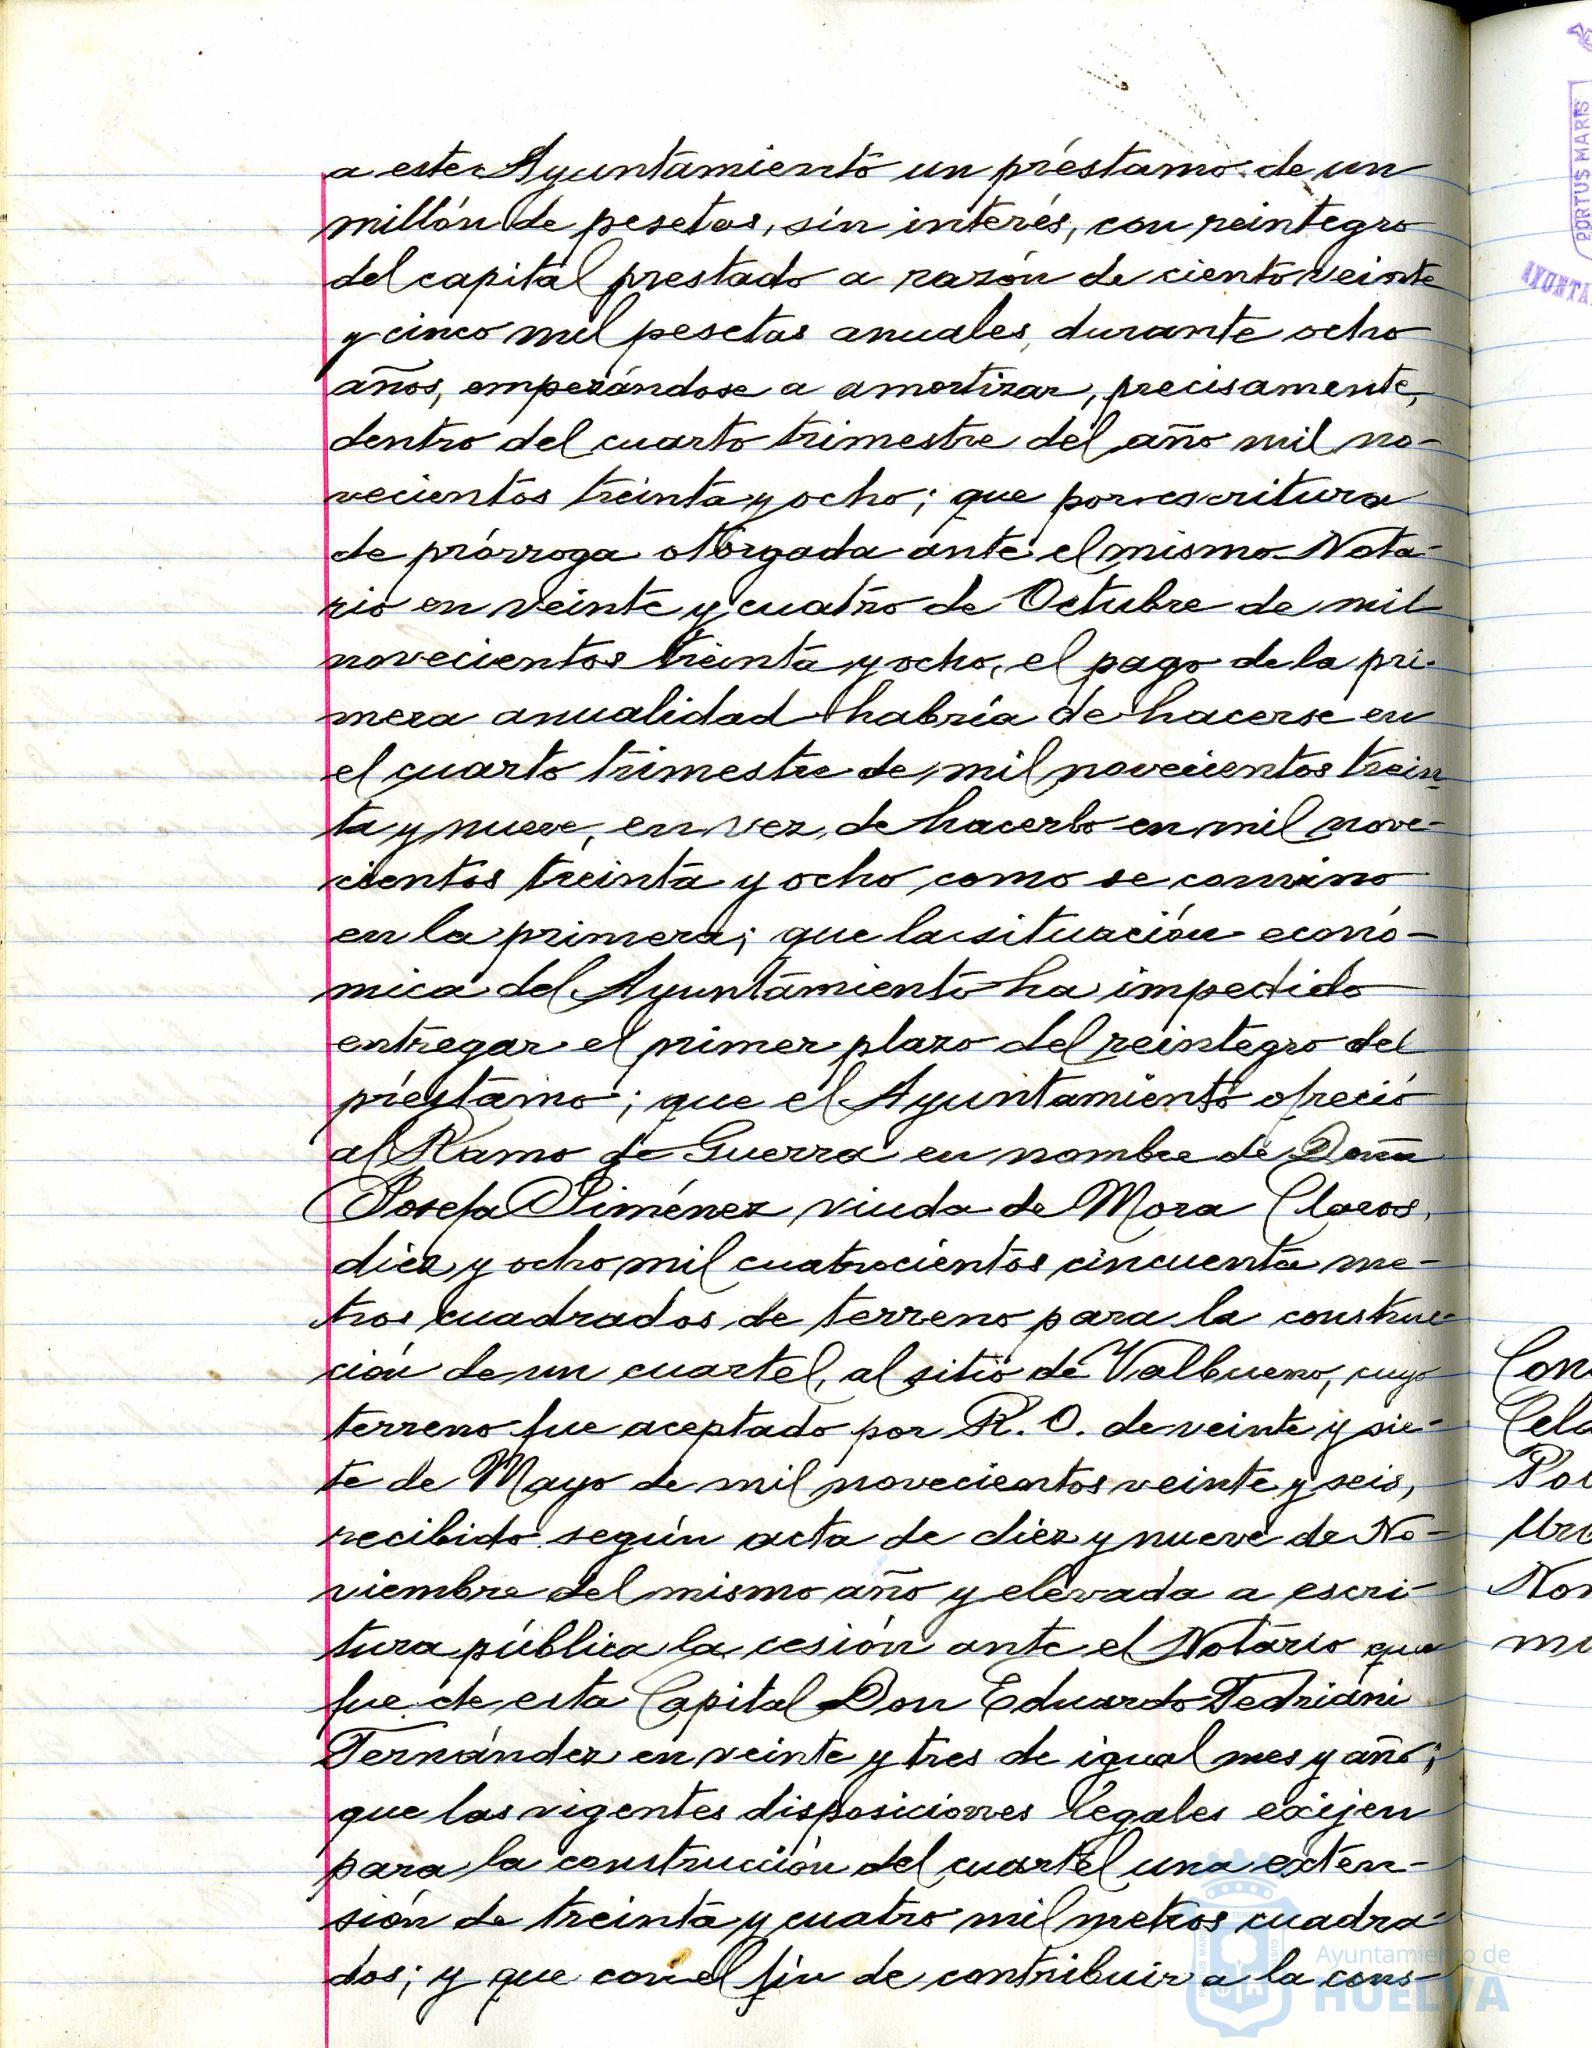 a este Ayuntamiento un préstamo de un
millón de pesetas, sin interés, con reintegro
del capital prestado a razón de ciento veinte
y cinco mil pesetas anuales, durante ocho
años, empezándose a amortizar, precisamente,
dentro del cuarto trimestre del año mil no-
vecientos treinta y ocho; que por escritura
de prórroga otorgada ante el mismo Nota-
rio en veinte y cuatro de Octubre de mil
novecientos treinta y ocho, el pago de la pri-
mera anualidad habría de hacerse en
el cuarto trimestre de mil novecientos trein-
ta y nueve, en vez de hacerlo en mil nove-
cientos treinta y ocho como se convino
en la primera; que la situación econó-
mica del Ayuntamiento ha impedido
entregar el primer plazo del reintegro del
préstamo; que el Ayuntamiento ofreció
al Ramo de Guerra en nombre de Doña
Josefa Jiménez viuda de Mora Claros,
diez y ocho mil cuatrocientos cincuenta me-
tros cuadrados de terreno para la construc-
ción de un cuartel, al sitio de Valbueno, cuyo
terreno fue aceptado por R. O. de veinte y sie-
te de Mayo de mil novecientos veinte y seis,
recibido según acta de diez y nueve de No-
viembre del mismo año y elevada a escri-
tura pública la cesión ante el Notario que
fue de esta Capital Don Eduardo Fedriani
Fernández en veinte y tres de igual mes y año;
que las vigentes disposiciones legales exijen
para la construcción del cuartel una exten-
sión de treinta y cuatro mil metros cuadra-
dos; y que con el fin de contribuir a la cons-
PORTUS MARIS
AYUNTA
Con
Cela
Mi
Ayuntamiento de
HUELVA